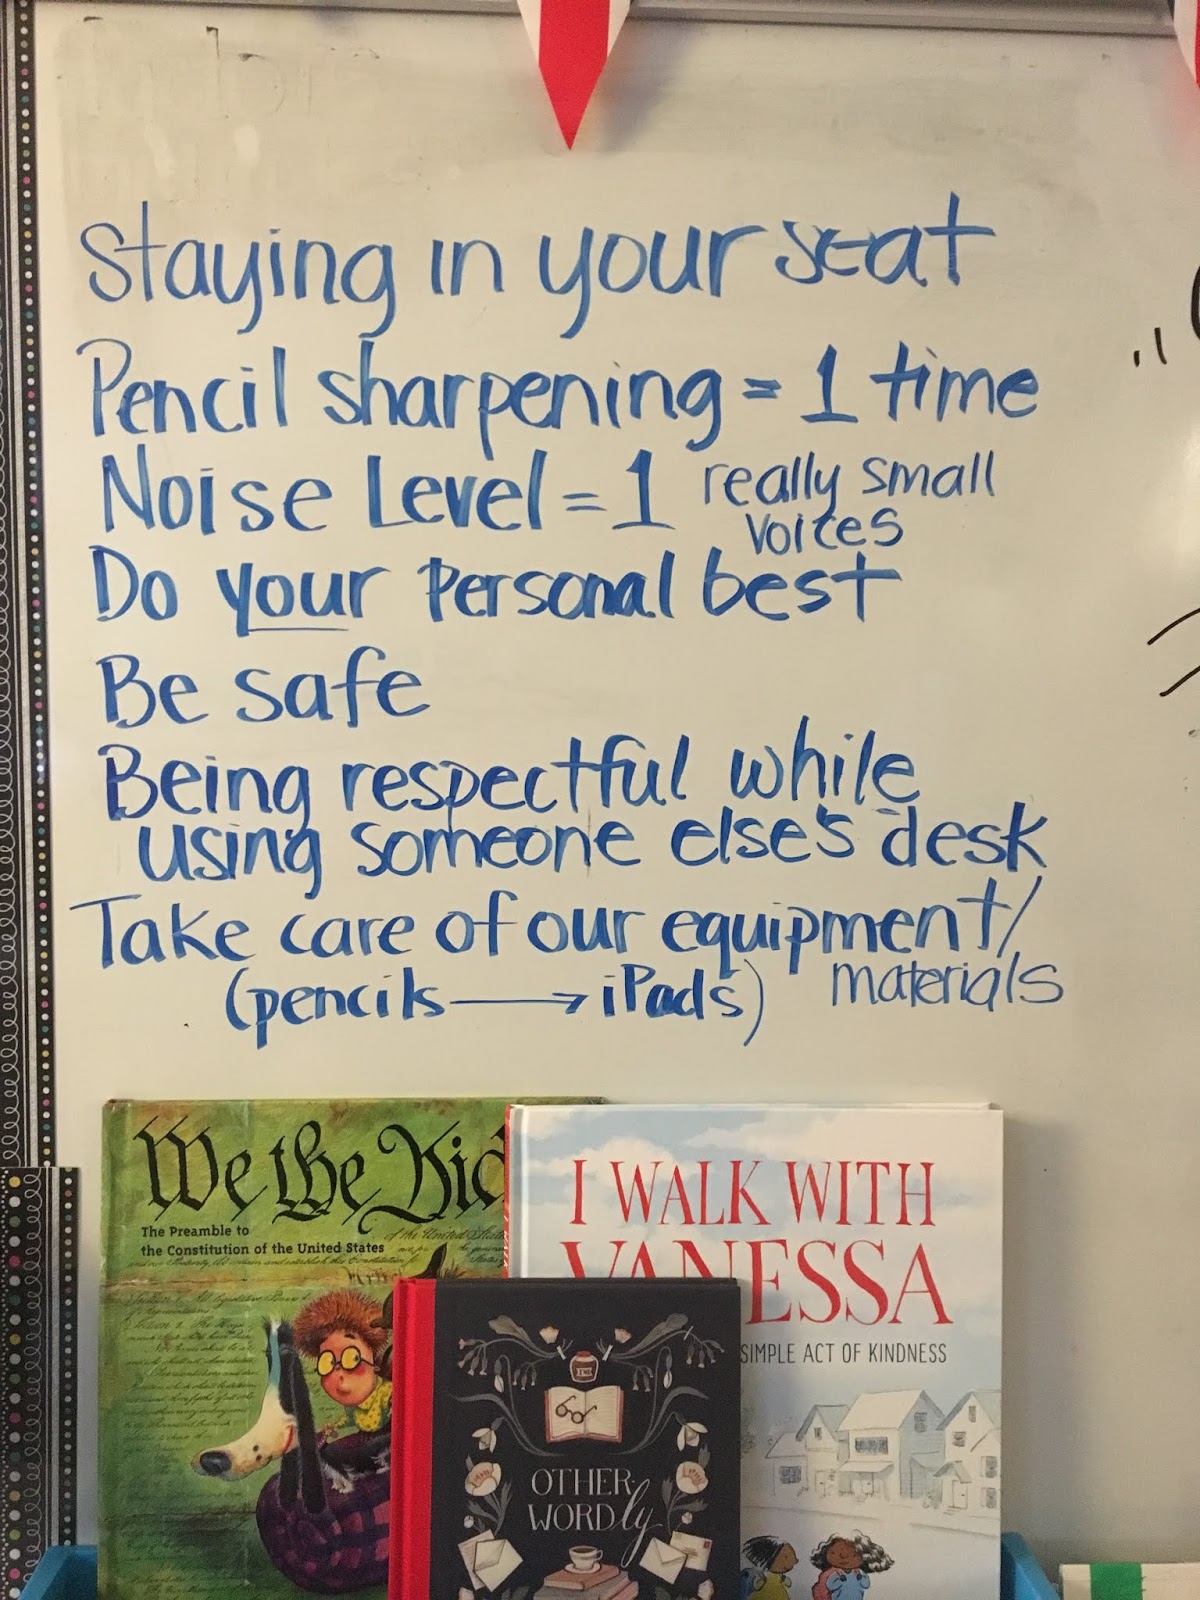 Staying in your seat
Pencil sharpening = 1 time
Noise Level = 1 really small
voices
Do your personal best
Be safe
Being respectful while
using someone else's desk
Take care of our equipment/
materials
(pencils → iPads)
We the Kid
The Preamble to
the Constitution of the United States
I WALK WITH
VANESSA
SIMPLE ACT OF KINDNESS
OTHER-
WORDly